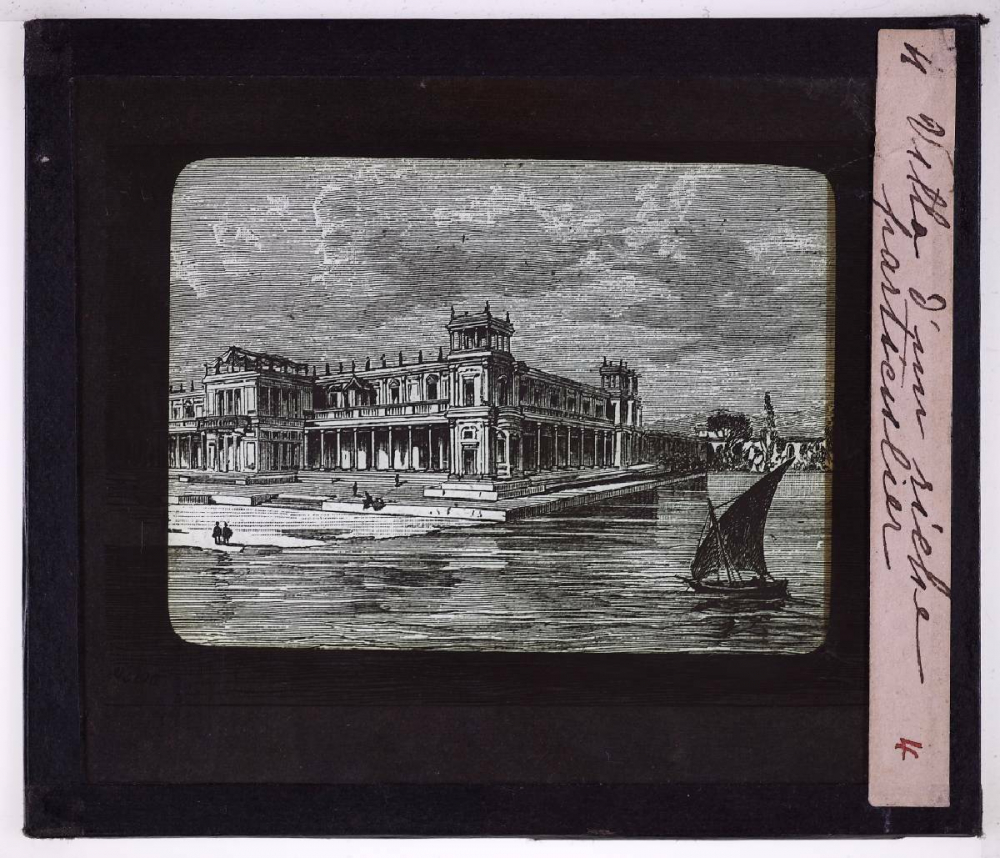 4 Villa d'un riche
particulier
4